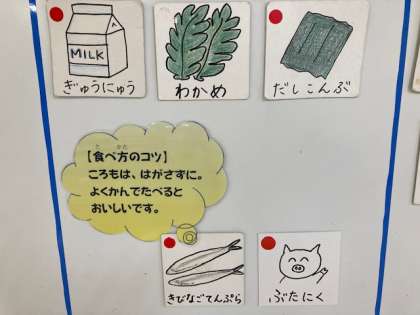 MILK
ぎゅうにゅう
わかめ
だしこんぶ
【食べ方のコツ】
ころもは、はがさずに。
よくかんでたべると
おいしいです。
きびなごてんぷら
ぶたにく